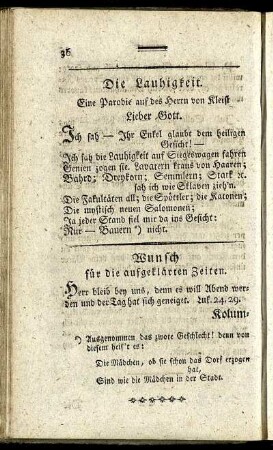 36
Die Lauhigkeit.
Eine Parodie auf des Herrn von Kleist
Lieber Gott.
Ich sah — Ihr Enkel glaubt dem heiligen
Gesicht! —
Ich sah die Lauhigkeit auf Siegeswagen fahren
Genien zogen sie. Lavatern kraus von Haaren;
Bahrd; Dreykorn; Semmlern; Stark &c.
sah ich wie Sklaven zieh'n.
Die Fakultäten all; die Spöttler; die Katonen;
Die mystisch neuen Salomonen;
Ja jeder Stand fiel mir da ins Gesicht:
Nur — Bauern *) nicht.
Wunsch
für die aufgeklärten Zeiten.
Herr bleib bey uns, denn es will Abend wer-
den und der Tag hat sich geneiget. Luk. 24. 29.
Kolum-
*) Ausgenommen das zwote Geschlecht! denn von
diesem heis't es:
Die Mädchen, ob sie schon das Dorf erzogen
hat,
Sind wie die Mädchen in der Stadt.